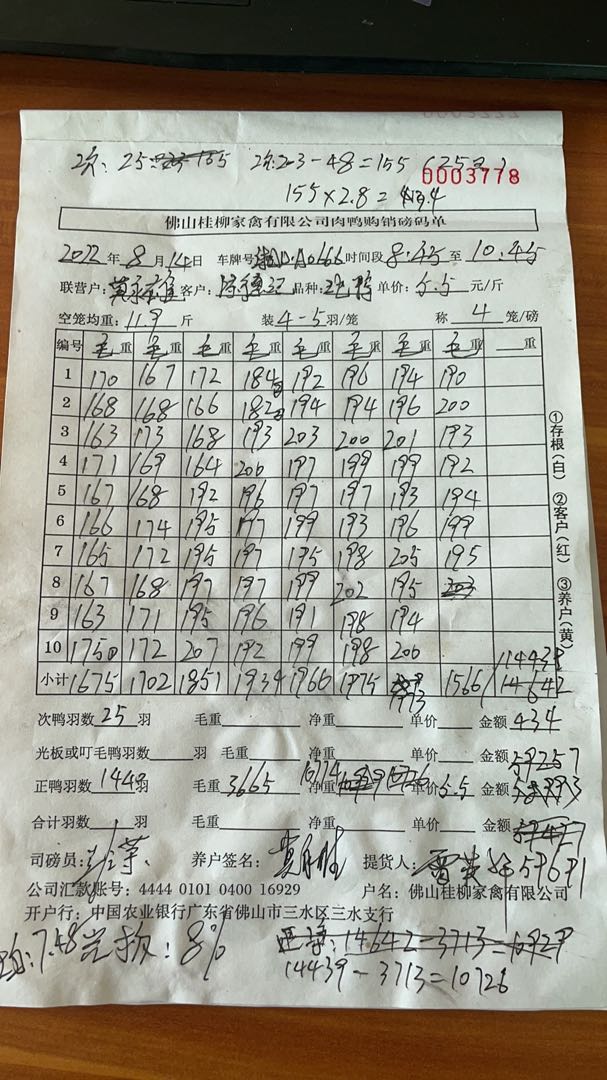 次:203-48=155(25只)
0003778
155×2.8=434
佛山桂柳家禽有限公司肉鸭购销磅码单
2022年8月14日 车牌号 时间段8:45至10:45
联营户: 客户: 品种: 单价:5.5元/斤
空笼均重:11.9斤 装4-5羽/笼 称4笼/磅
编号 毛重 毛重 毛重 毛重 毛重 毛重 毛重 毛重 重
1 170 167 172 184 192 196 194 190
2 168 168 166 182 194 194 196 200
3 163 173 168 193 203 200 201 193
4 171 169 164 200 197 199 199 192
5 167 168 192 196 197 197 193 194
6 166 174 195 197 199 193 196 199
7 165 172 195 197 195 198 205 195
8 167 168 197 197 199 202 195 203
9 163 171 195 196 191 198 194
10 175 172 207 192 199 198 200
14439
小计 1675 1702 1851 1934 1966 1975 1973 1566 14642
次鸭羽数25羽 毛重 净重 单价 金额434
光板或叮毛鸭羽数 羽 毛重 净重 单价 金额59257
正鸭羽数 羽 毛重3665 净重 单价5.5 金额
合计羽数 羽 毛重 净重 单价 金额
司磅员: 养户签名: 提货人: 59691
公司汇款账号:4444 0101 0400 16929 户名:佛山桂柳家禽有限公司
开户行:中国农业银行广东省佛山市三水区三水支行
均:7.48 光板:8%
14642-3713=10929
14439-3713=10726
①存根(白) ②客户(红) ③养户(黄)